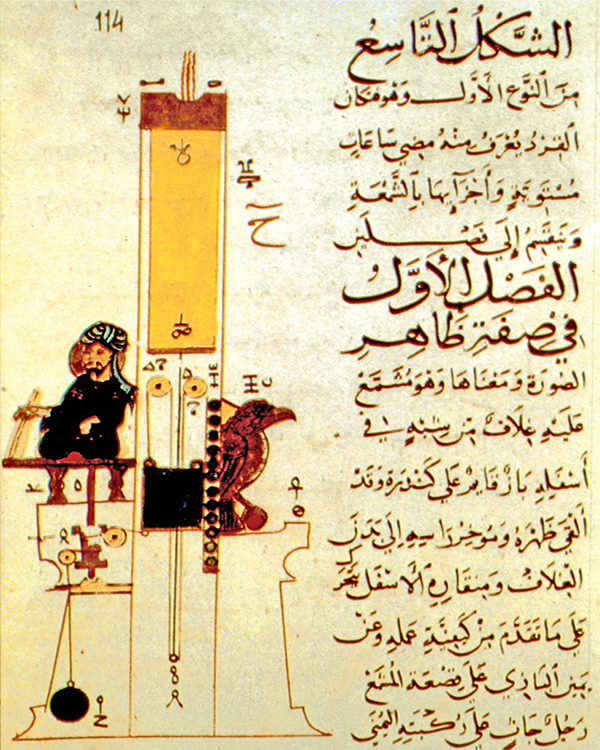 114
الشكل التاسع
من النوع الأول وهو فنكان
القرد يعرف منه مضي ساعات
مستوية وأجزآيها بالشمعة
وينقسم إلى فصلين
الفصل الأول
في صفة ظاهر
الصورة ومعناها وهو مشمع
عليه غلاف من شبه في
أسفله باز قايم على كندرة وقد
ألقى ظهره وموخر راسه إلى بدن
الغلاف ومنقاره الاسفل
على ما تقدم من كيفية عمله وعن
يمين البازي على قصعة المشمع
رجل جاث على ركبته اليمنى
ح